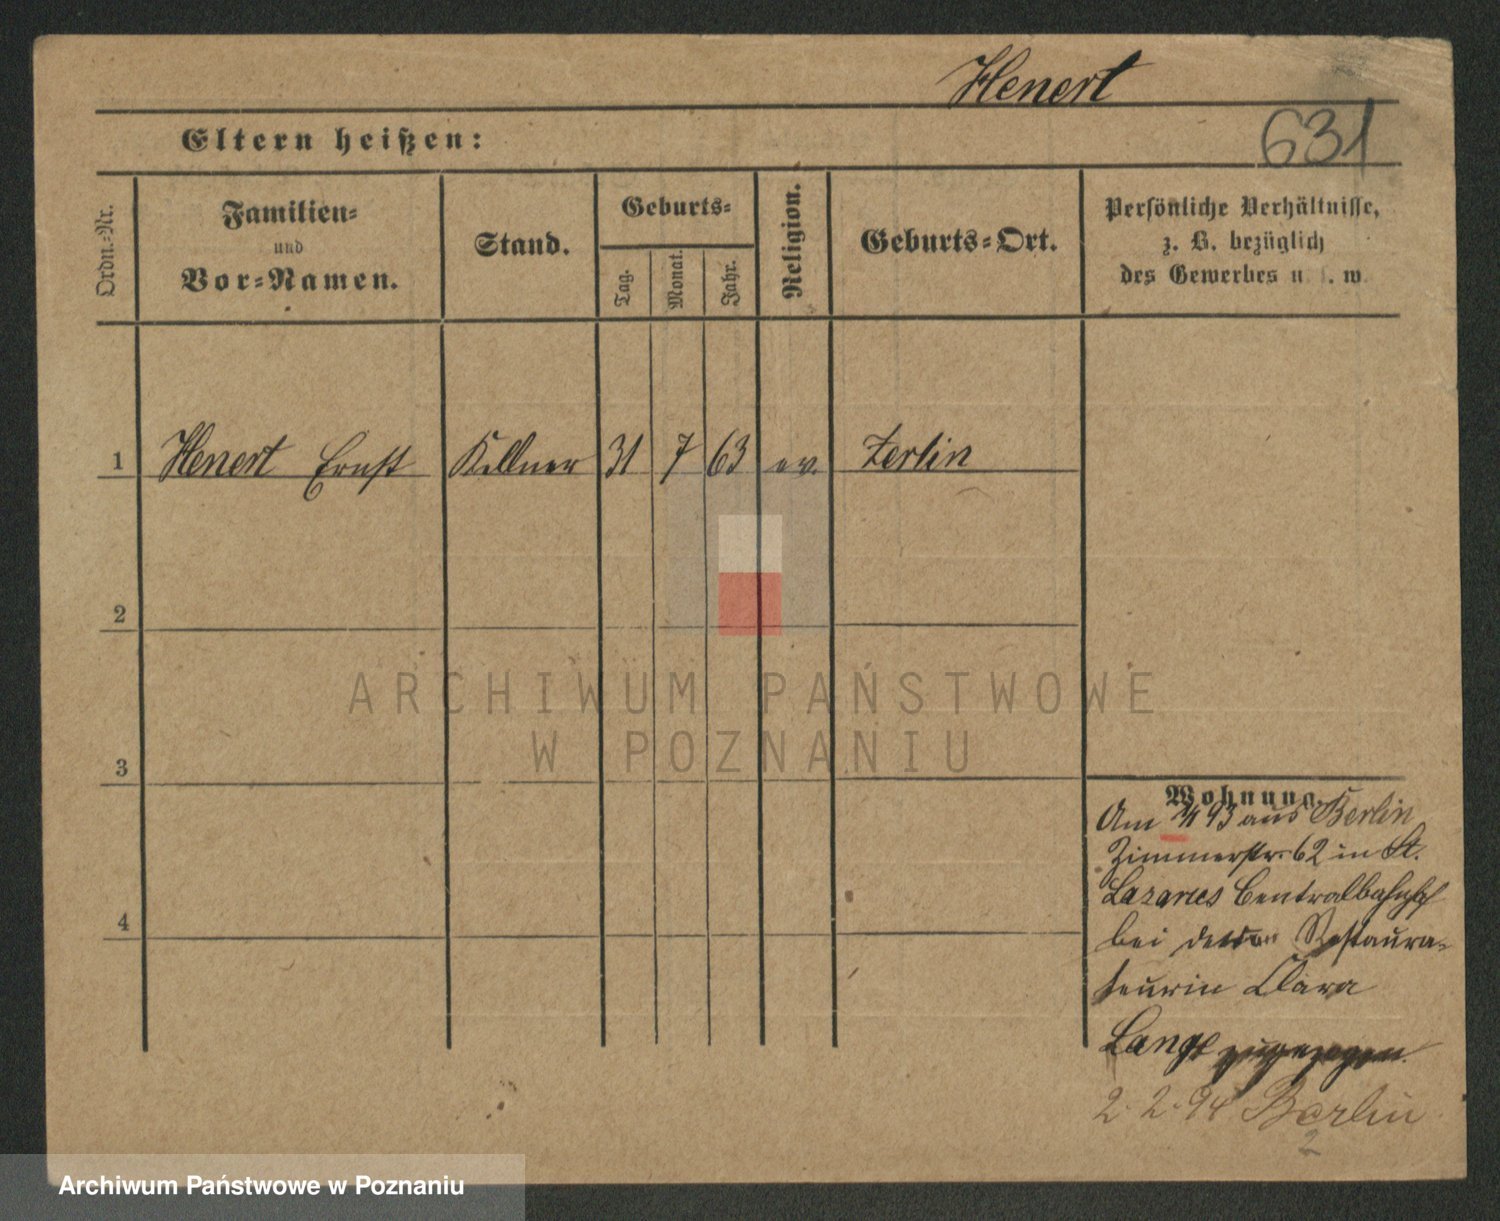 Henert
631
Eltern heißen:
Ordn.-Nr.
Familien-
und
Vor-Namen.
Stand.
Geburts-
Tag.
Monat.
Jahr.
Religion.
Geburts-Ort.
Persönliche Verhältnisse,
z. B. bezüglich
des Gewerbes u. s. w.
1 Henert Ernst Kellner 31 7 63 ev. Zerlin
2
3
4
Wohnung.
Am 93 aus Berlin
Zimmerstr. 62 in St.
Lazarus Centralbahnhof
bei Restaura-
teurin Clara
Lange zugezogen.
2. 2. 94 Berlin
2
ARCHIWUM PAŃSTWOWE
W POZNANIU
Archiwum Państwowe w Poznaniu